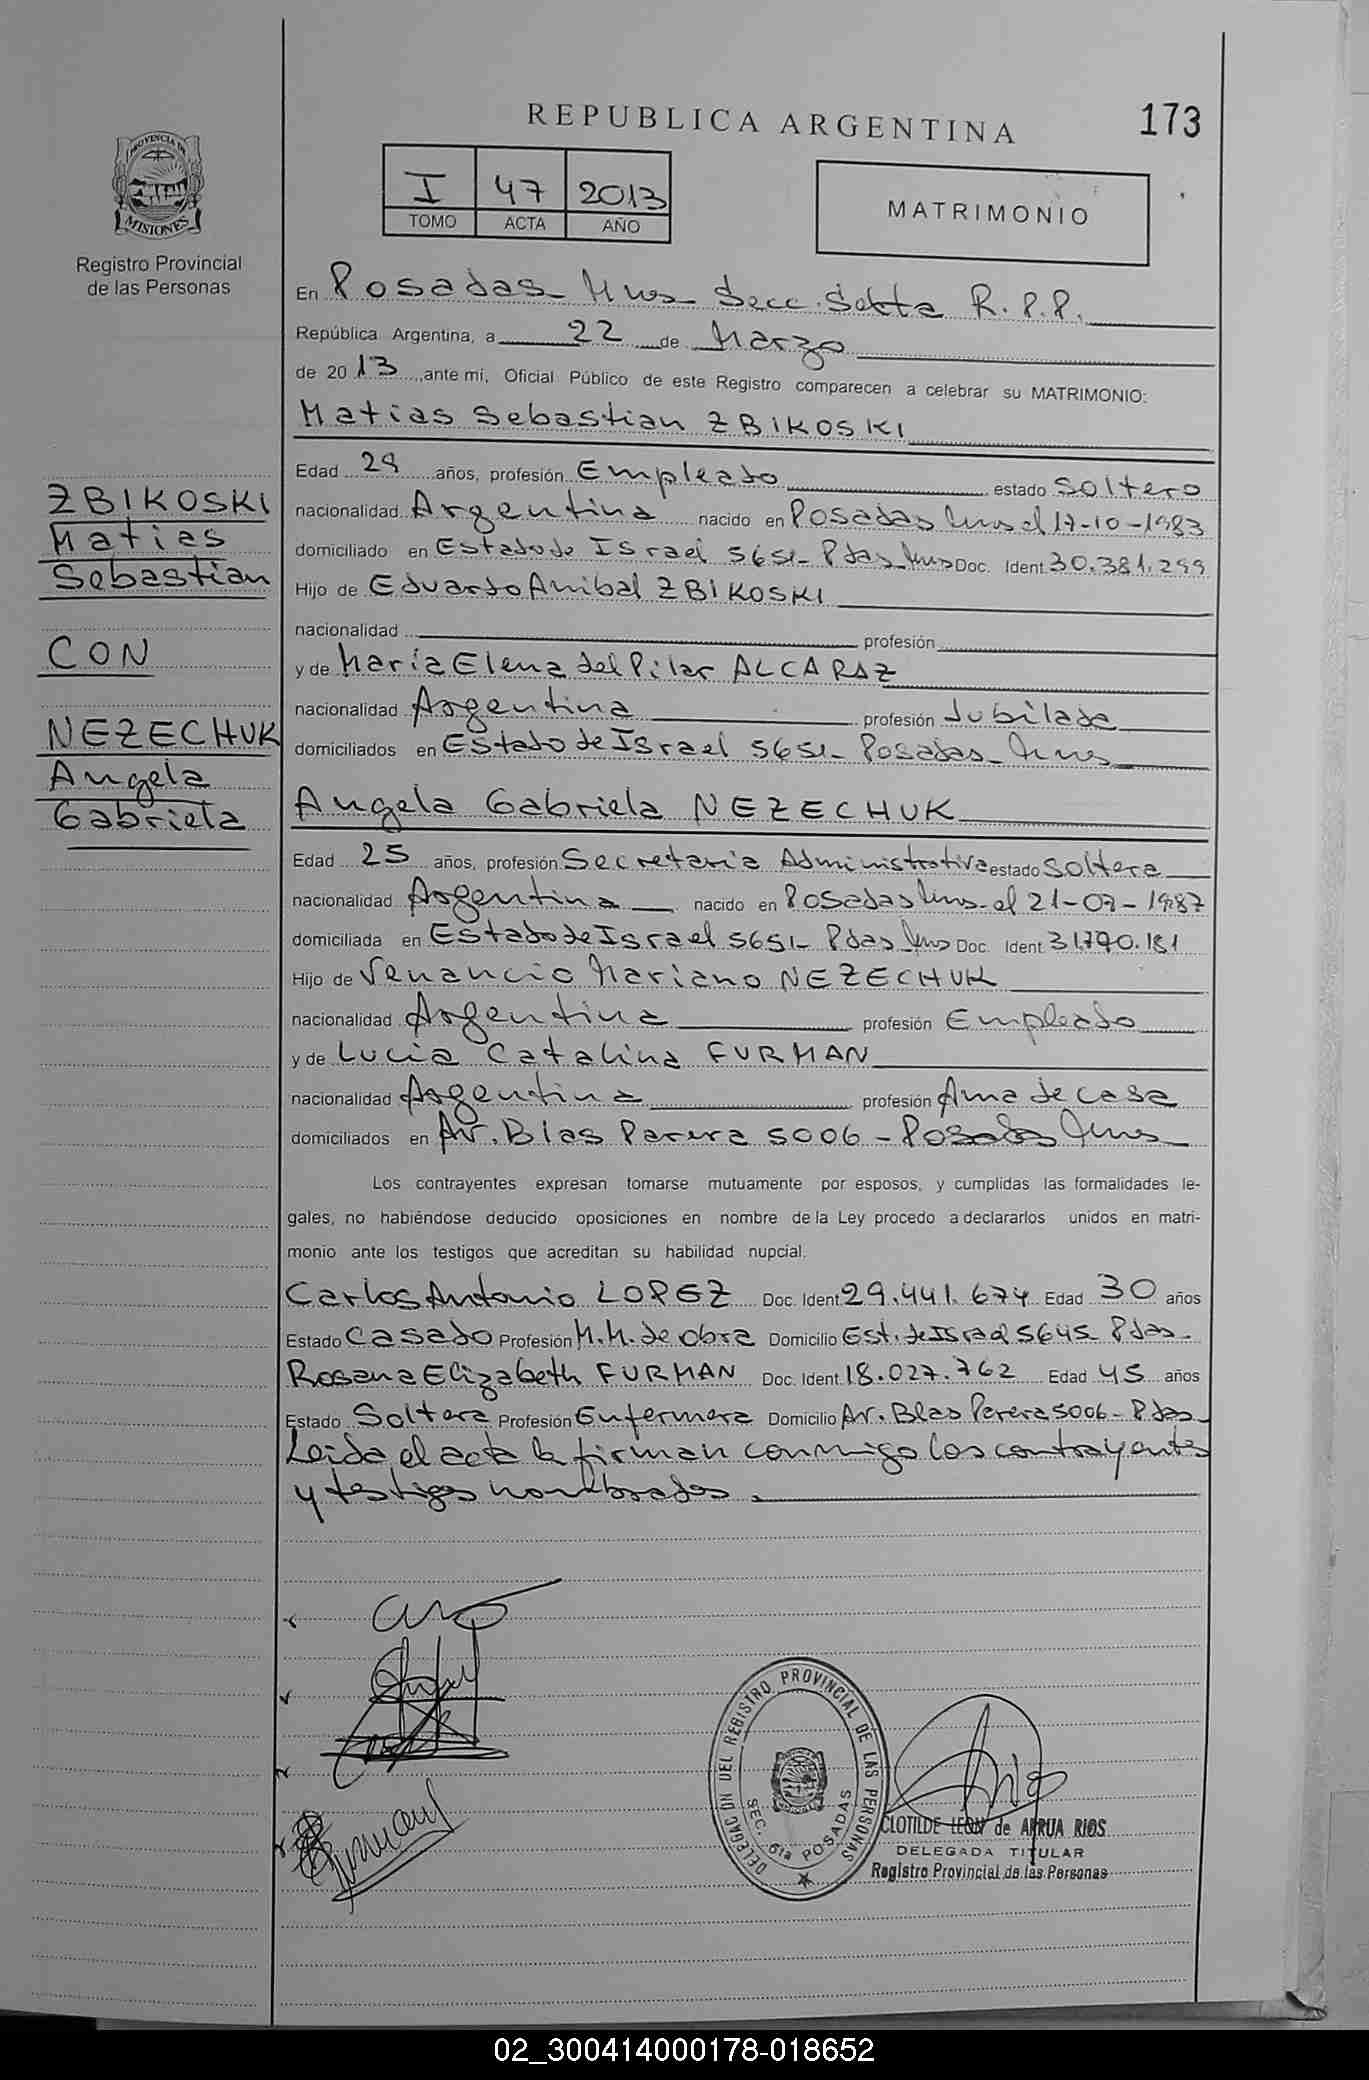 REPUBLICA ARGENTINA
173
PROVINCIA DE
MISIONES
Registro Provincial
de las Personas
I 47 2013
TOMO ACTA AÑO
MATRIMONIO
En Posadas Mnes Secc. Sexta R.P.P.
República Argentina, a 22 de Marzo
de 2013, ante mí, Oficial Público de este Registro comparecen a celebrar su MATRIMONIO:
Matias Sebastian ZBIKOSKI
Edad 29 años, profesión Empleado estado Soltero
nacionalidad Argentina nacido en Posadas Mnes el 17-10-1983
domiciliado en Estado de Israel 5651- Pdas Mnes Doc. Ident. 30.381.299
Hijo de Eduardo Anibal ZBIKOSKI
nacionalidad profesión
y de Maria Elena del Pilar ALCARAZ
nacionalidad Argentina profesión Jubilada
domiciliados en Estado de Israel 5651- Posadas- Mnes
Angela Gabriela NEZECHUK
Edad 25 años, profesión Secretaria Administrativa estado Soltera
nacionalidad Argentina nacido en Posadas Mnes- el 21-07-1987
domiciliada en Estado de Israel 5651- Pdas Mnes Doc. Ident. 31.790.181
Hijo de Venancio Mariano NEZECHUK
nacionalidad Argentina profesión Empleado
y de Lucia Catalina FURMAN
nacionalidad Argentina profesión Ama de casa
domiciliados en Av. Blas Parera 5006 - Posadas Mnes
Los contrayentes expresan tomarse mutuamente por esposos, y cumplidas las formalidades le-
gales, no habiéndose deducido oposiciones en nombre de la Ley procedo a declararlos unidos en matri-
monio ante los testigos que acreditan su habilidad nupcial.
Carlos Antonio LOPEZ Doc. Ident. 29.441.674 Edad 30 años
Estado Casado Profesión M.M. de obra Domicilio Est. de Israel 5645- Pdas-
Rosana Elizabeth FURMAN Doc. Ident. 18.027.762 Edad 45 años
Estado Soltera Profesión Enfermera Domicilio Av. Blas Parera 5006- Pdas-
Leida el acta la firman conmigo los contrayentes
y testigos nombrados.
ZBIKOSKI
Matias
Sebastian
CON
NEZECHUK
Angela
Gabriela
DELEGACION DEL REGISTRO PROVINCIAL DE LAS PERSONAS
SEC. 6ta POSADAS
CLOTILDE LEON de ARRUA RIOS
DELEGADA TITULAR
Registro Provincial de las Personas
02_300414000178-018652